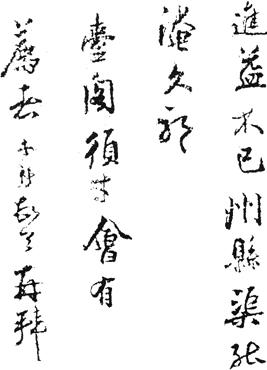 進益不已州縣渠能
淹久耶
臺閣須才會有
薦者 再拜